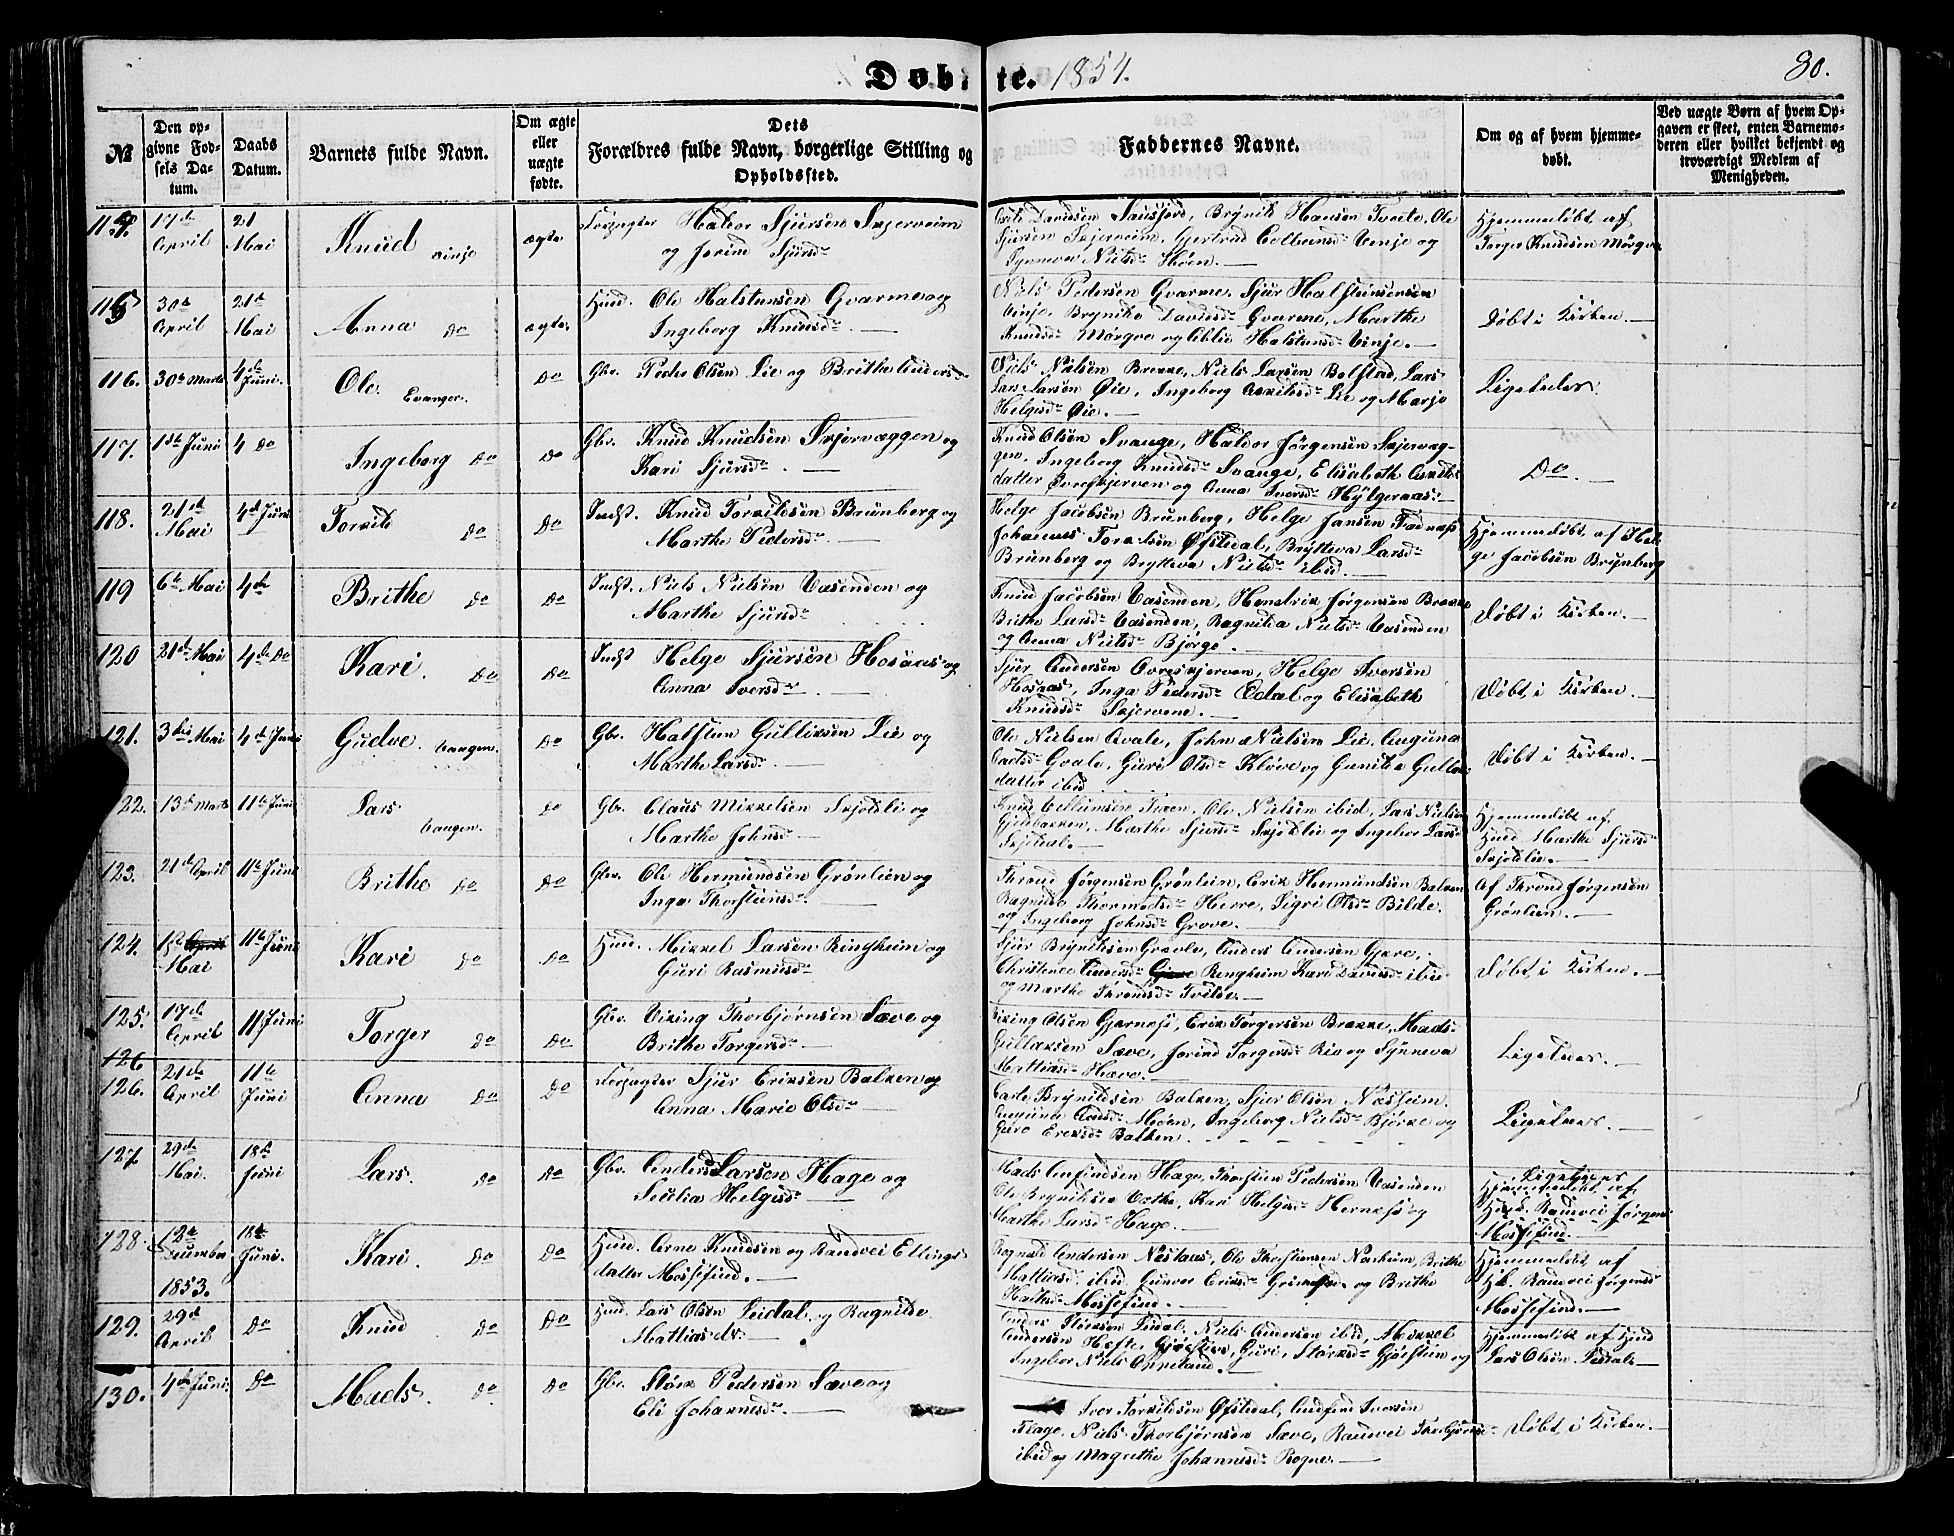 Døbte. 1854. 80.
№
Den op-
givne Fød-
sels Da-
tum.
Daabs
Datum.
Barnets fulde Navn.
Om ægte
eller
uægte
fødte.
Dets
Forældres fulde Navn, borgerlige Stilling og
Opholdssted.
Faddernes Navne.
Om og af hvem hjemme-
døbt.
Ved uægte Børn af hvem Op-
gaven er skeet, enten Barnemo-
deren eller hvilket bekjendt og
troværdigt Medlem af
Menigheden.
114. 17de April 21 Mai Knud Vinje ægte
Haldor Sjursen Skjerveim
og Jorind Sjursd.
Davidsen Sausjord, Brynild Hansen Tveite, Ole
Sjursen Skjerveim, Gertrud Vinje og
Synneva Nielsd.
Hjemmedøbt af
Torger Knudsen Mørqve
115 30te April 21de Mai Anna Do ægte
Huud. Ole Halstensen Gvarme og
Ingeborg Knudsd.
Niels Pedersen Gvarme, Sjur Halstensen
Vinje, Brynild Davidsd. Gvarme, Marthe
Knudsd. Mørqve og Halstensd. Vinje.
Døbt i Kirken.
116. 30te Marts 4de Juni. Ole Evanger. Do
Gbr. Peder Olsen Lie og Brithe Andersd.
Niels Nielsen Brekke, Niels Larsen Bolstad, Lars
Larsen Øie, Ingeborg Lie og Marje
Helgesd. Øie.
Ligeledes.
117. 1ste Juni 4 Do Ingeborg Do Do
Gbr. Knud Knudsen Skjervæggen og
Kari Sjursd.
Knud Olsen Svange, Haldor Jørgensen Skjervæg-
gen, Ingeborg Knudsd. Svange, Elisabeth
datter og Anna Iversd. Hylgeraas.
Do.
118. 21de Mai 4de Juni Torkild Do Do
Indst. Knud Torkildsen Brunberg og
Marthe Pedersd.
Helge Jacobsen Brunberg, Helge Jansen Fadnæss
Johannes Øfstedal, Brytteva Larsd.
Brunberg og Brytteva Nielsd. ibid.
Hjemmedøbt af Hel-
ge Jacobsen Brunberg
119 6te Mai 4de Brithe Do Do
Indst. Niels Nielsen Vasenden og
Marthe Sjursd.
Knud Jacobsen Vasenden, Hendrik Jørgensen
Brithe Larsd. Vasenden, Ragnilda Nielsd. Vasenden
og Anna Nielsd. Bjørge.
Døbt i Kirken.
120 21de Mai 4de Do Kari. Do Do
Indst Helge Sjursen Hosaas og
Anna Iversd.
Sjur Andersen Øvreskjerven, Helge Iversen
Hosaas, Inga Pedersd. Ædal og Elisabeth
Knudsd. Skjervene.
Døbt i Kirken.
121. 3die Mai 4de Juni Gudve. Vangen. Do
Gbr. Halsten Gulliksen Lie og
Marthe Larsd.
Ole Nielsen Qvale, John Nielsen Lie, Auguna
Qvale, Guri Olsd. Kløve og
datter ibid
Døbt i Kirken.
122. 13de Marts 11te Juni Lars Vangen. Do
Gbr. Claus Mikkelsen Skjeldlie og
Marthe Johnsd.
Knud Ole Nielsen ibid, Lars Nielsen
Gjelbakken, Marthe Sjursd. Skjeldlie og Ingebor Larsd
Hjemmedøbt af
Huud. Marthe Sjursd
Skjeldlie.
123. 21de April 11te Juni Brithe Do Do
Gbr. Ole Hermundsen Grønlien og
Inga Thorstensd.
Thrond Jørgensen Grønlein, Erik Hermundsen Balken
Ragnilde Thormodsd. Herre, Sigri Olsd. Bilde.
og Ingeborg Johnsd. Grove.
Af Thrond Jørgensen
Grønlien.
124. 1ste April Mai 11te Juni Kari Do Do
Huud. Mikkel Larsen Ringheim og
Guri Rasmusd.
Sjur Brynildsen Anders Andersen Gjære,
Christence Andersd. Gjære Rengheim Kari Davidsd. ibid
og Marthe Throndsd. Tvilde.
Døbt i Kirken.
125. 17de April 11 Juni Torger Do Do
Gbr. Viking Thorbjørnsen Sæve og
Brithe Torgersd.
Viking Olsen Gjernæss, Erik Torgersen Brekke, Mads
Gulliksen Sæve, Jorind Torgersd. Rio og Synneva
Mattiasd. Hæve.
Ligeledes.
126
126. 21de April 11te Juni Anna Do Do
Forpagter Sjur Eriksen Balken og
Anna Marie Olsd.
Brynildsen Balken, Sjur Olsen Næsheim.
Møen, Ingeborg Nielsd. Bjørke og
Guro Eriksd. Balken.
Ligeledes.
127. 29de Mai. 18de Juni Lars. Do Do
Gbr. Anders Larsen Hage og
Secilia Helgesd.
Mads Anfindsen Hage, Thorstien Pedersen Vasenden
Ole Brynildsen Væthe, Kari Helgesd. Hernæss og
Marthe Larsd. Hage.
Ligeledes
Hjemmedøbt af
Huud. Randvei Jørgens
Mossefind.
128. 12te December 1853. 18de Juni. Kari. Do Do
Huud. Arne Knudsen og Randvei Ellings
datter Mossefind.
Rognald Andersen Næstaas, Ole Thorstensen Norheim, Brithe
Mattiasd. ibid. Gunvor Eriksd. og Brithe
Mossefind.
Hjemmedøbt af
Randvei Jørgensd
Mossefind.
129. 29de April Do Knud Do Do
Huud. Lars Olsen Leidal og Ragnilde
Mattias dr.
Anders Størksen Leidal, Niels Andersen ibid, Mikkel
Andersen Hefte, Gjøstein, Guri Størksd. Gjøstein og
Ingebor Niels Opheland.
Hjemmedøbt af Huud
Lars Olsen Leidal
130. 4de Juni Do Mads. Do. Do
Gbr. Størk Pedersen Sæve og
Eli Johannesd.
Iver Torkildsen Øfstedal, Andfind Iversen
Hage, Niels Thorbjørnsen Sæve, Randvei Thorbjørnsd.
ibid og Magrethe Johannesd. Rogne.
Døbt i Kirken.